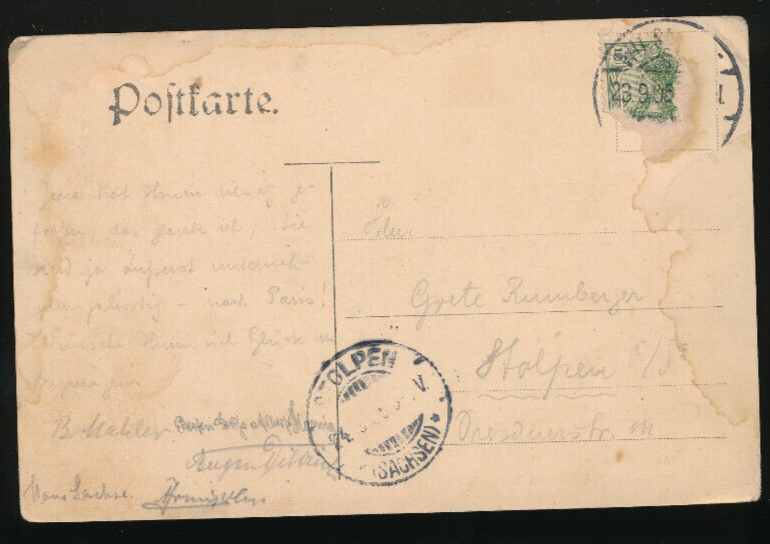 Postkarte.
5
23.9.05
Jena hat Ihnen riesig ge-
fallen, das glaube ich; Sie
sind ja äußerst unterneh-
mungslustig – nach Paris!
Wünsche Ihnen viel Glück
B. Mahler
Eugen
Hans Sachse.
Frl.
Grete Rumberger
Stolpen i/S.
Dresdnerstr.
STOLPEN
V
(SACHSEN) *